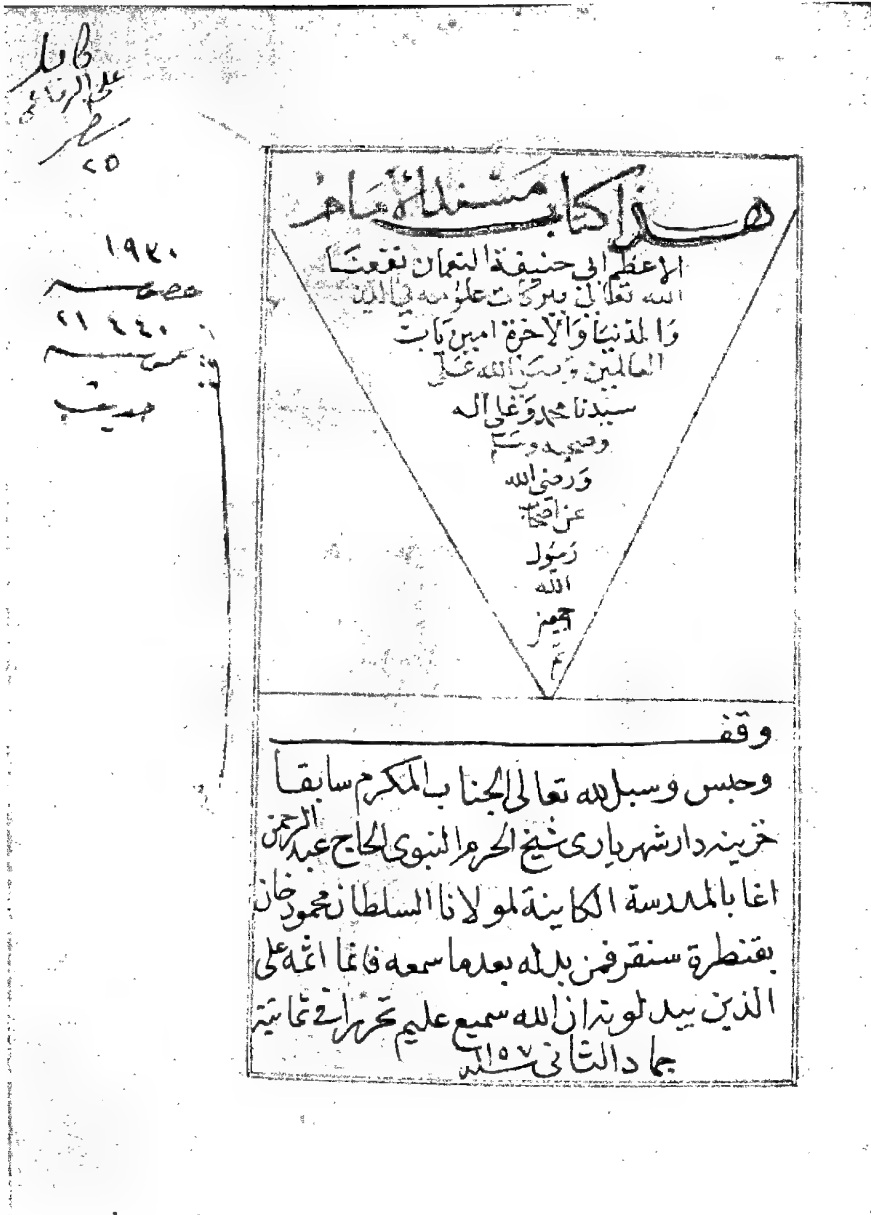 هذا كتاب مسند الامام
الاعظم ابى حنيفة النعمان نفعنا
الله تعالى ببركات علومه فى الدين
والدنيا والآخرة امين يارب
العالمين وصلى الله على
سيدنا محمد وعلى اله
وصحبه وسلم
ورضى الله
عن اصحاب
رسول
الله
اجمعين
م
وقف
وحبس وسبل لله تعالى الجناب المكرم سابقا
خزينه دار شهريارى شيخ الحرم النبوى الحاج عبد الرحمن
اغا بالمدرسة الكاينة لمولانا السلطان محمود خان
بقنطرة سنقر فمن بدله بعدما سمعه فانما اثمه على
الذين يبدلونه ان الله سميع عليم تحريرا فى ثمانية
جماد الثانى سنة ١١٥٧
على
٢٥
١٩٣٠
خصوصيه
٢١٤٤٠
عموميه
حديث